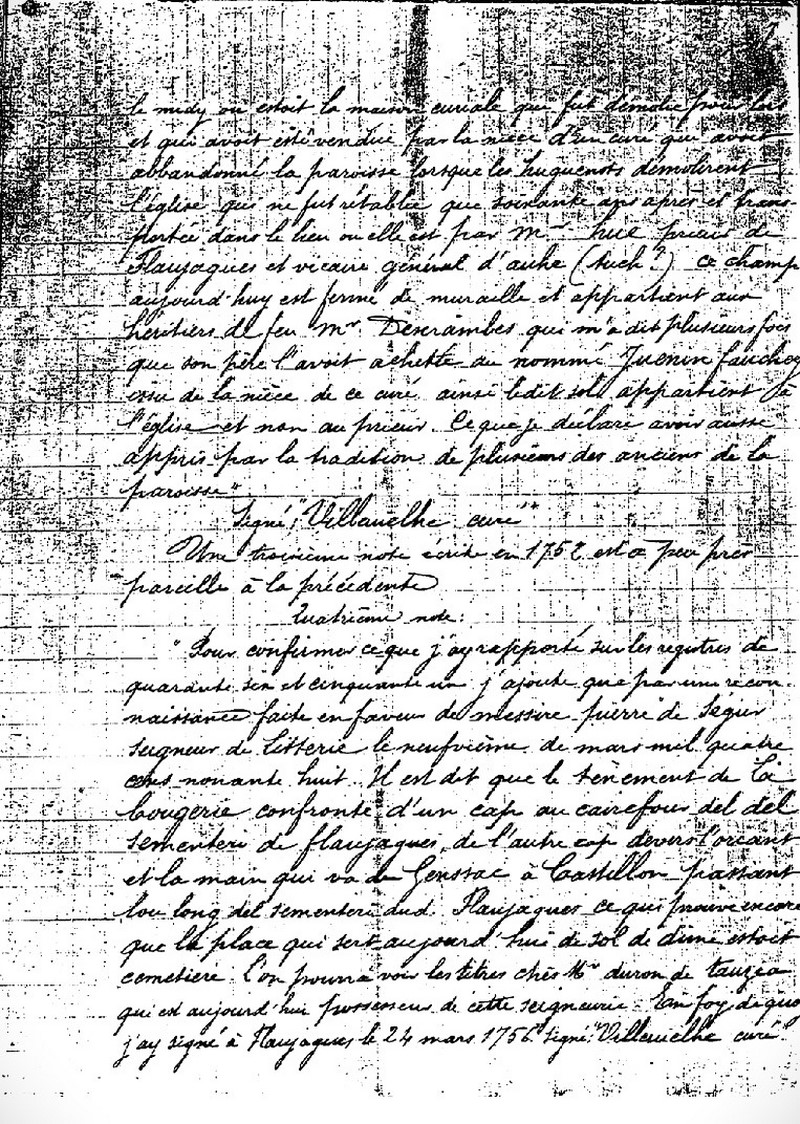 le midy ou estoit la maison curiale qui fut démolie pour lors
et qui avoit esté vendue par la nièce d'un curé qui avoit
abbandonné la paroisse lorsque les huguenots démolirent
l'église qui ne fut rétablie que soixante ans après et trans-
portée dans le lieu ou elle est par Mr hue prieur de
Flaujagues et vicaire général d'auhe (Auch?) ce champ
aujourd'huy est fermé de muraille et appartient aux
héritiers de feu Mr Descrambes qui m'a dit plusieurs fois
que son père l'avoit achetté du nommé Juenin fauchey
essu de la nièce de ce curé ainsi ledit sol appartient à
l'église et non au prieur. Ce que je déclare avoir aussi
appris par la tradition de plusieurs des anciens de la
paroisse"
Signé: "Villauelhe curé"
Une troisième note écrite en 1752 est à peu près
pareille à la précédente
Quatrième note:
"Pour confirmer ce que j'ay rapporté sur les registres de
quarante six et cinquante un j'ajoute que par une recon-
naissance faite en faveur de messire pierre de Segur
seigneur de Litterie le neufvième de mars mil quatre
cens nonante huit. Il est dit que le tènement de la
bougerie confronte d'un cap au cairefour del del
sementeri de flaujagues, de l'autre cap devers l'orcant
et la main qui va de Genssac à Castillon passant
lou long del sementeri dud. Flaujagues ce qui prouve encore
que la place qui sert aujourd'hui de sol de dime estoit
cemetière. l'on pourra voir les titres chès Mr duron de tauzia
qui est aujourd'hui possesseur de cette seigneurie. En foy de quoi
j'ay signé à Flaujagues le 24 mars 1756" signé: "Villauelhe curé.